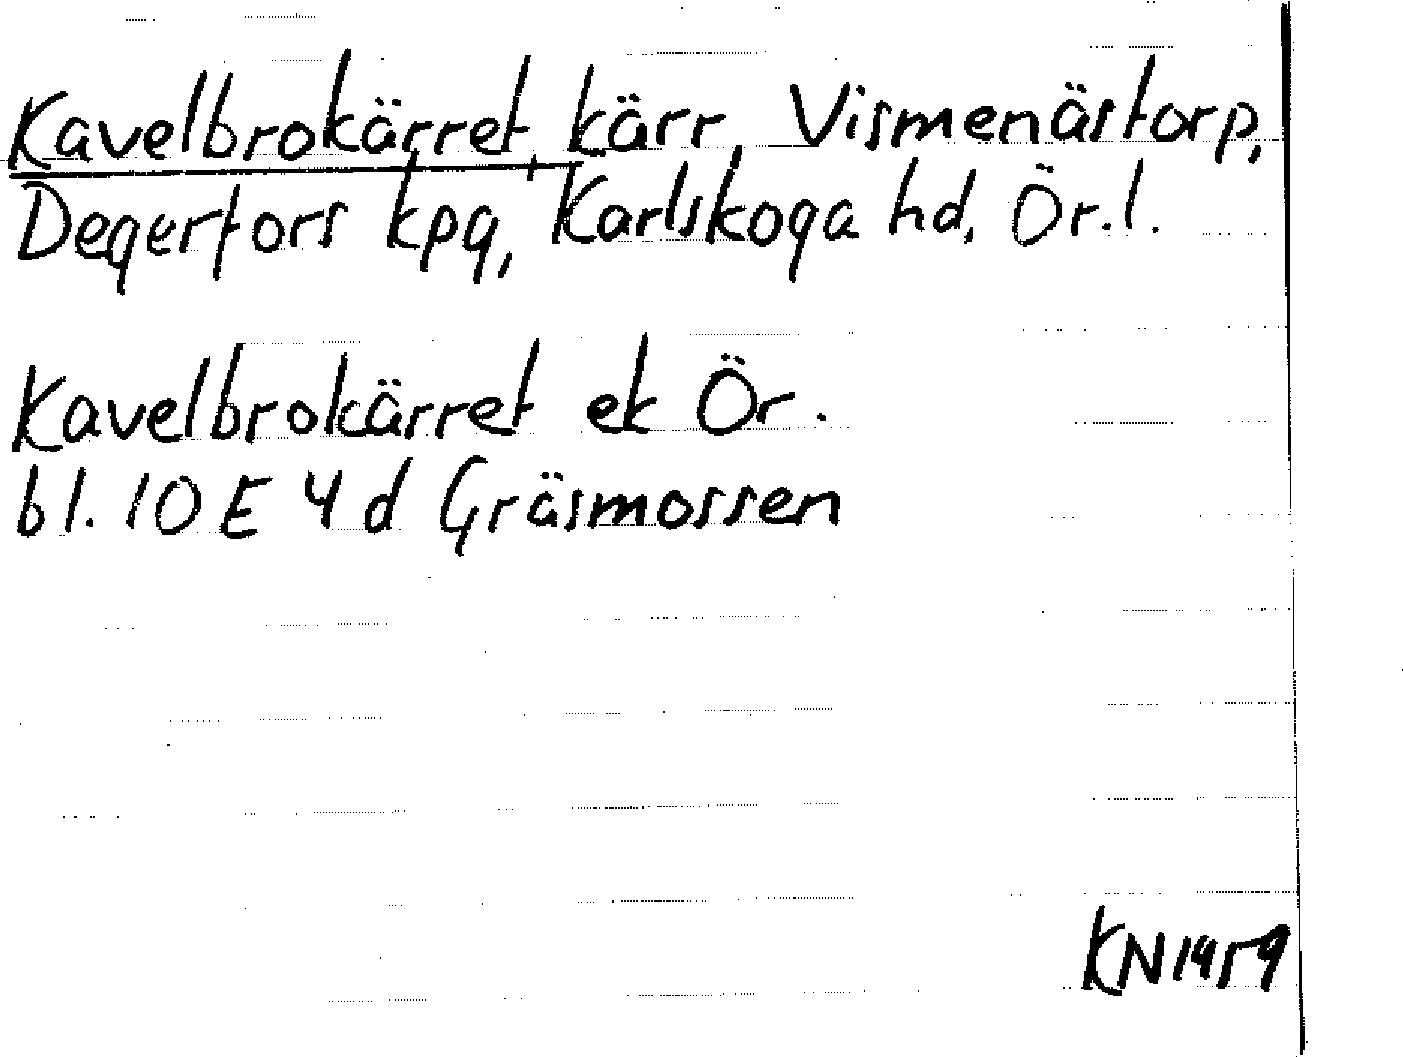 Kavelbrokärret, kärr, Vismenästorp,
Degerfors kpg, Karlskoga hd, Ör.l.
Kavelbrokärret ek Ör.
bl. 10 E 4 d Gräsmossen
KN 1959